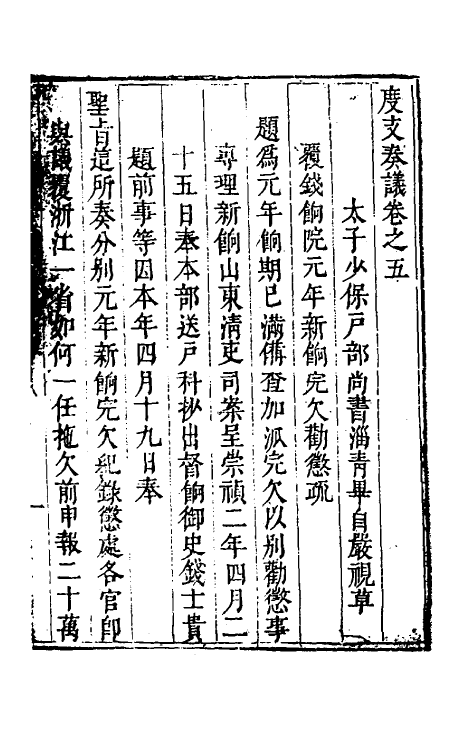 度支奏議卷之五
太子少保戶部尚書淄青畢自嚴視草
覆錢餉院元年新餉完欠勸懲疏
題爲元年餉期已滿備查加派完欠以別勸懲事
專理新餉山東清吏司案呈崇禎二年四月二
十五日奉本部送戶科抄出督餉御史錢士貴
題前事等因本年四月十九日奉
聖旨這所奏分別元年新餉完欠紀錄懲處各官即
與議覆浙江一省如何一任拖欠前申報二十萬